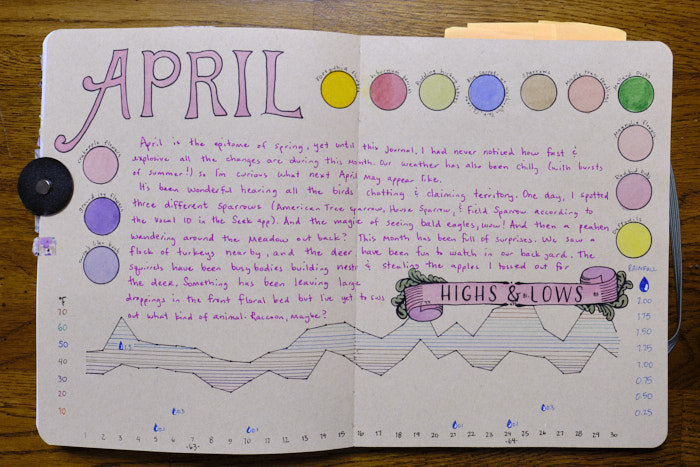 APRIL
April is the epitome of spring, yet until this journal, I had never noticed how fast &
explosive all the changes are during this month. Our weather has also been chilly (with bursts
of summer!) so I'm curious what next April may appear like.
It's been wonderful hearing all the birds chatting & claiming territory. One day, I spotted
three different sparrows (American Tree Sparrow, House Sparrow, & Field Sparrow according to
the Vocal ID in the Seek app). And the magic of seeing bald eagles, wow! And then a peahen
wandering around the meadow out back? This month has been full of surprises. We saw a
flock of turkeys nearby, and the deer have been fun to watch in our back yard. The
squirrels have been busy bodies building nests & stealing the apples I tossed out for
the deer. Something has been leaving large
droppings in the front floral bed but I've yet to suss
out what kind of animal. Racoon, maybe?
HIGHS & LOWS
Sparrows
Maple tree
RAINFALL
2.00
1.75
1.50
1.00
0.75
0.50
0.25
°F
70
60
50
40
30
20
10
1 2 3 4 5 6 7 8 9 10 11 12 13 14 15 16 17 18 19 20 21 22 23 24 25 26 27 28 29 30
-63-
-64-